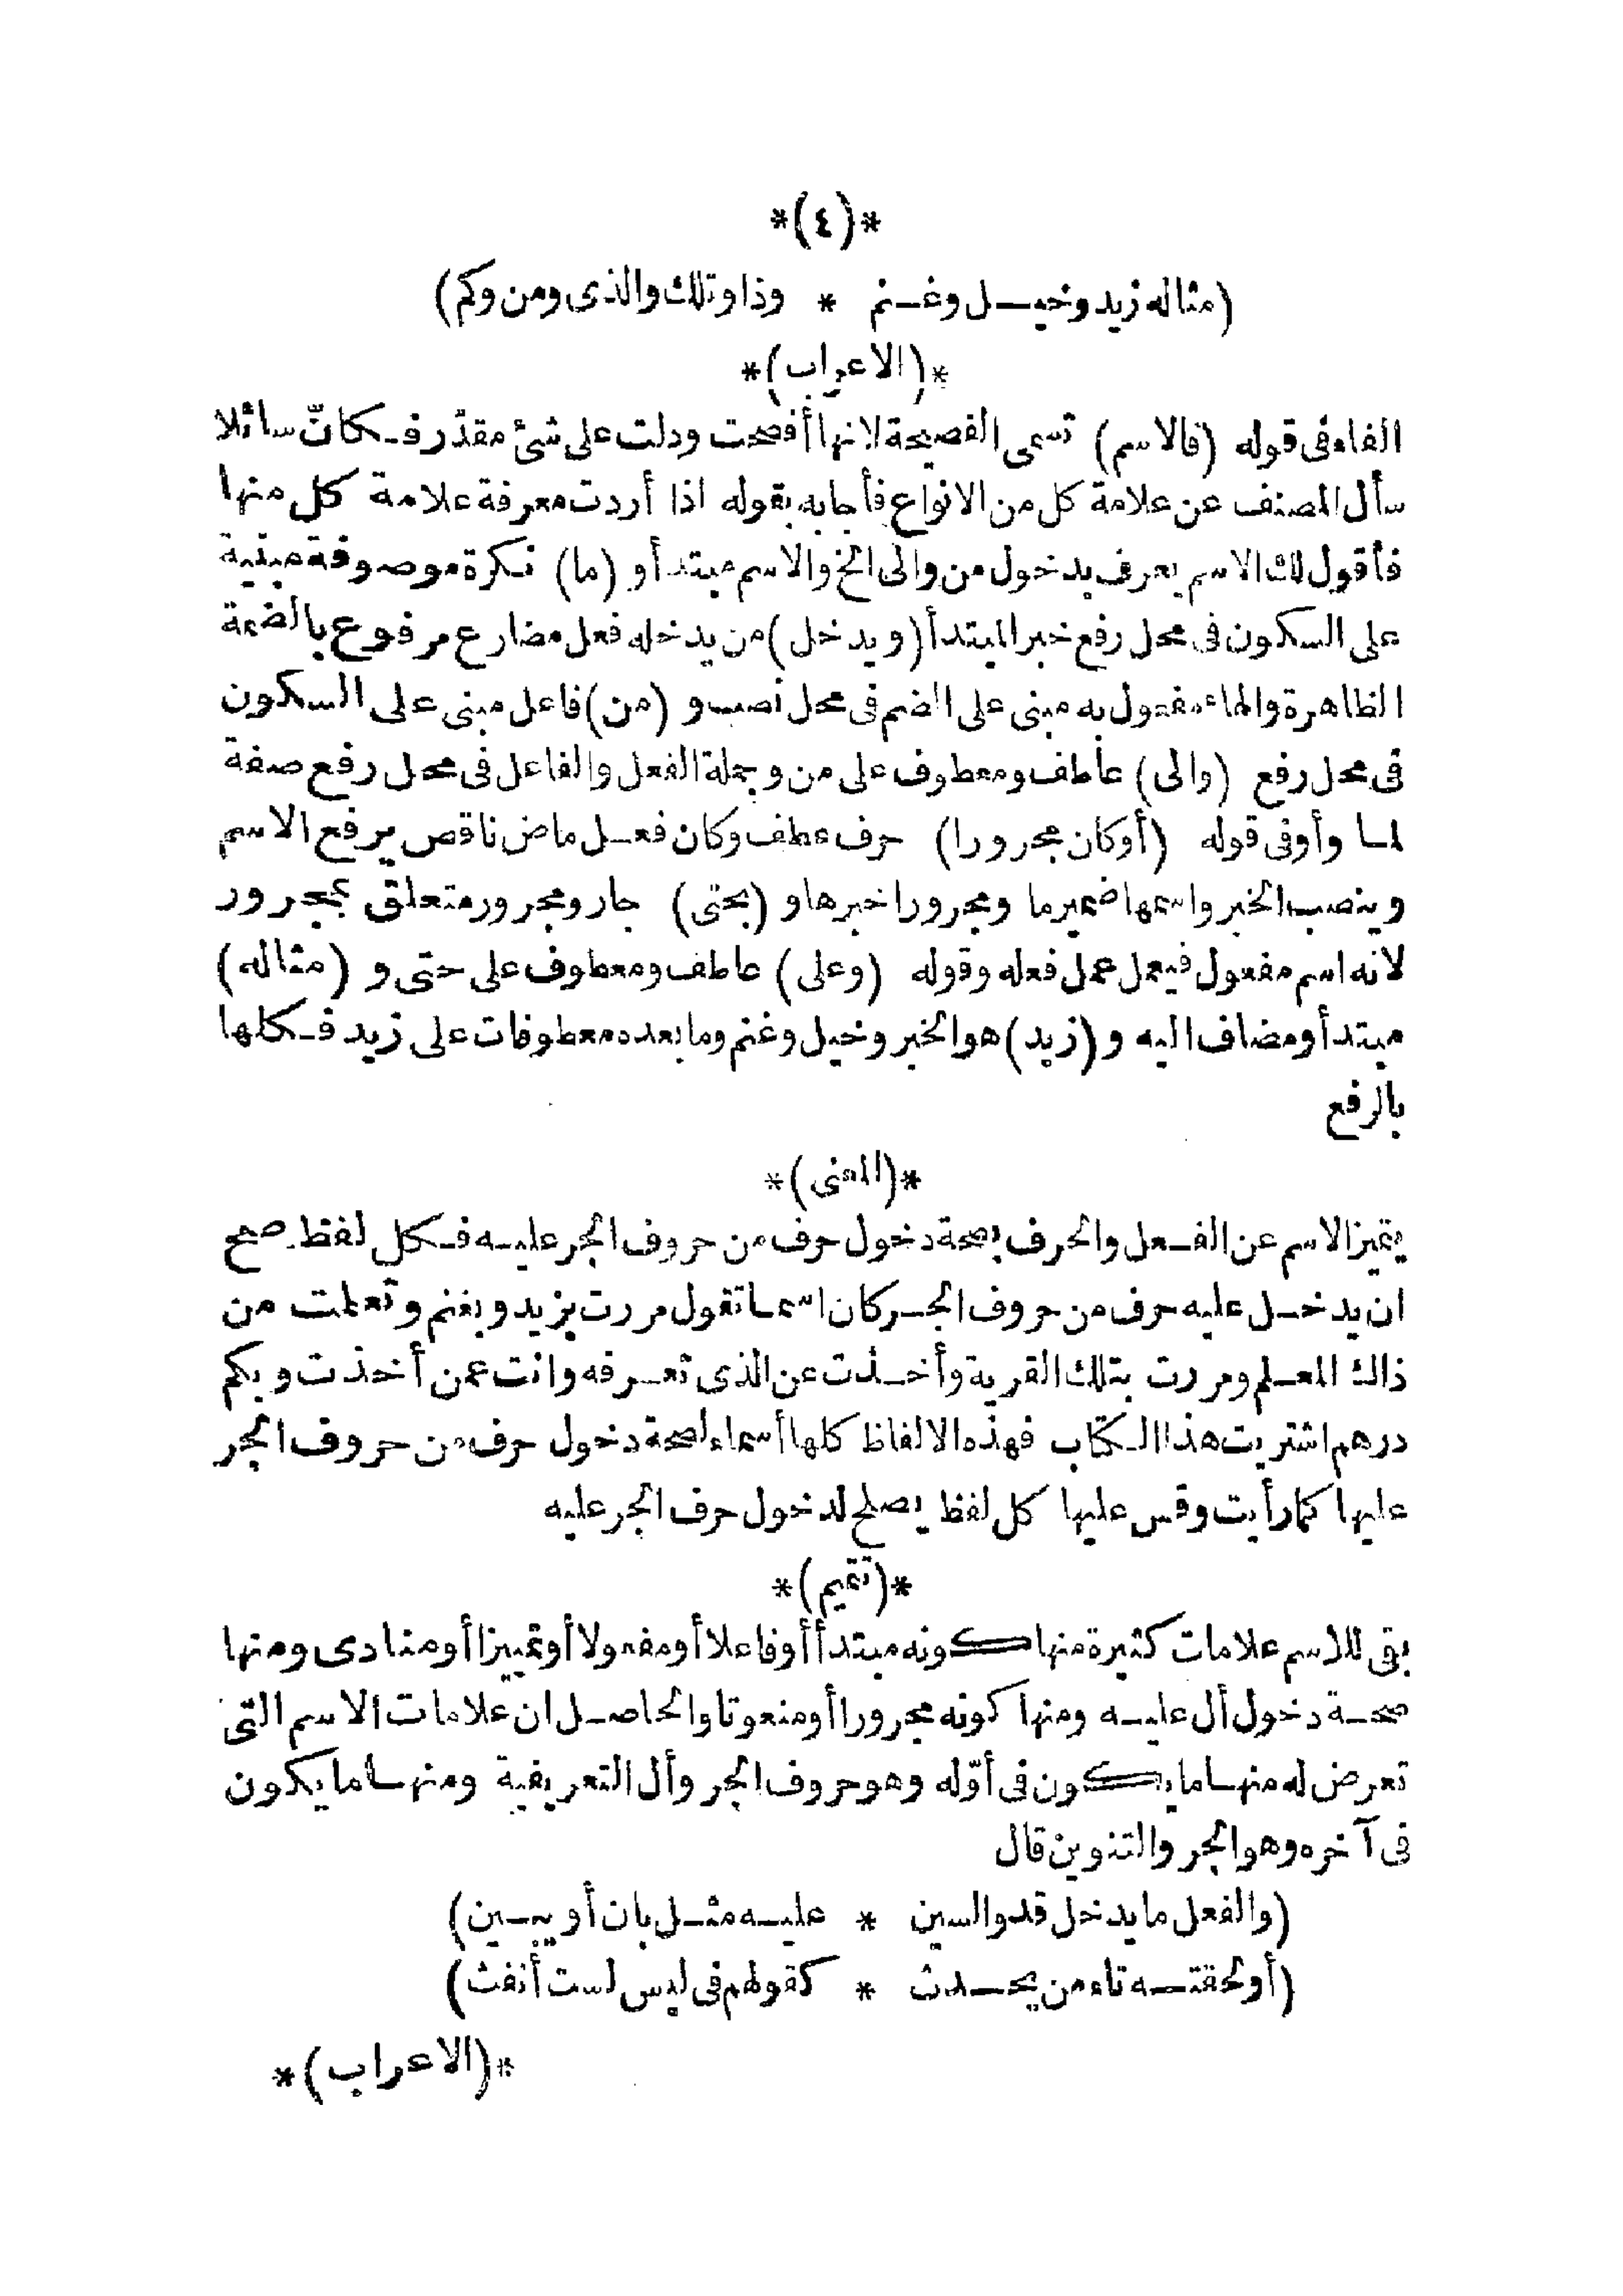 *(٤)*
(مثاله زيد وخيــل وغــنم * وذا وتلك والذى ومن وكم)
*(الاعراب)*
الفاء فى قوله (فالاسم) تسمى الفصيحة لانها أفصحت ودلت على شئ مقدّر فـكانّ سائلا
سأل المصنف عن علامة كل من الانواع فأجابه بقوله اذا أردت معرفة علامة كل منها
فأقول لك الاسم يعرف بدخول من والى الخ والاسم مبتدأ و (ما) نـكرة موصوفة مبنية
على السكون فى محل رفع خبر المبتدأ (ويدخل) من يدخله فعل مضارع مرفوع بالضمة
الظاهرة والهاء مفعول به مبنى على الضم فى محل نصب و (من) فاعل مبنى على السكون
فى محل رفع (والى) عاطف ومعطوف على من وجملة الفعل والفاعل فى محل رفع صفة
لما وأو فى قوله (أو كان مجرورا) حرف عطف وكان فعـل ماض ناقص يرفع الاسم
وينصب الخبر واسمها ضمير ما ومجرورا خبرها و (بحتى) جار ومجرور متعلق بمجرور
لانه اسم مفعول فيعمل عمل فعله وقوله (وعلى) عاطف ومعطوف على حتى و (مثاله)
مبتدأ ومضاف اليه و (زيد) هو الخبر وخيل وغنم وما بعده معطوفات على زيد فـكلها
بالرفع
*(المعنى)*
يتميز الاسم عن الفـعل والحرف بصحة دخول حرف من حروف الجر عليـه فـكل لفظ صح
ان يدخـل عليه حرف من حروف الجـر كان اسمـا تقول مررت بزيد وبغنم وتعلمت من
ذاك المعـلم ومررت بتلك القرية وأخـذت عن الذى تعـرفه وانت عمن أخذت وبكم
درهم اشتريت هذا الـكتاب فهذه الالفاظ كلها أسماء لصحة دخول حرف من حروف الجر
عليها كما رأيت وقس عليها كل لفظ يصلح لدخول حرف الجر عليه
*(تتميم)*
بقى للاسم علامات كثيرة منها كونه مبتدأ أو فاعلا أو مفعولا أو تمييزا أو منادى ومنها
صحـة دخول أل عليـه ومنها كونه مجرورا أو منعوتا والحاصـل ان علامات الاسم التى
تعرض له منهـا ما يكون فى أوّله وهو حروف الجر وأل التعريفية ومنهـا ما يكون
فى آخره وهو الجر والتنوين قال
(والفعل ما يدخل قد والسين * عليـه مثـل بان أو يبـين)
(أو لحقتـه تاء من يحـدث * كقولهم فى ليس لست أنفث)
*(الاعراب)*